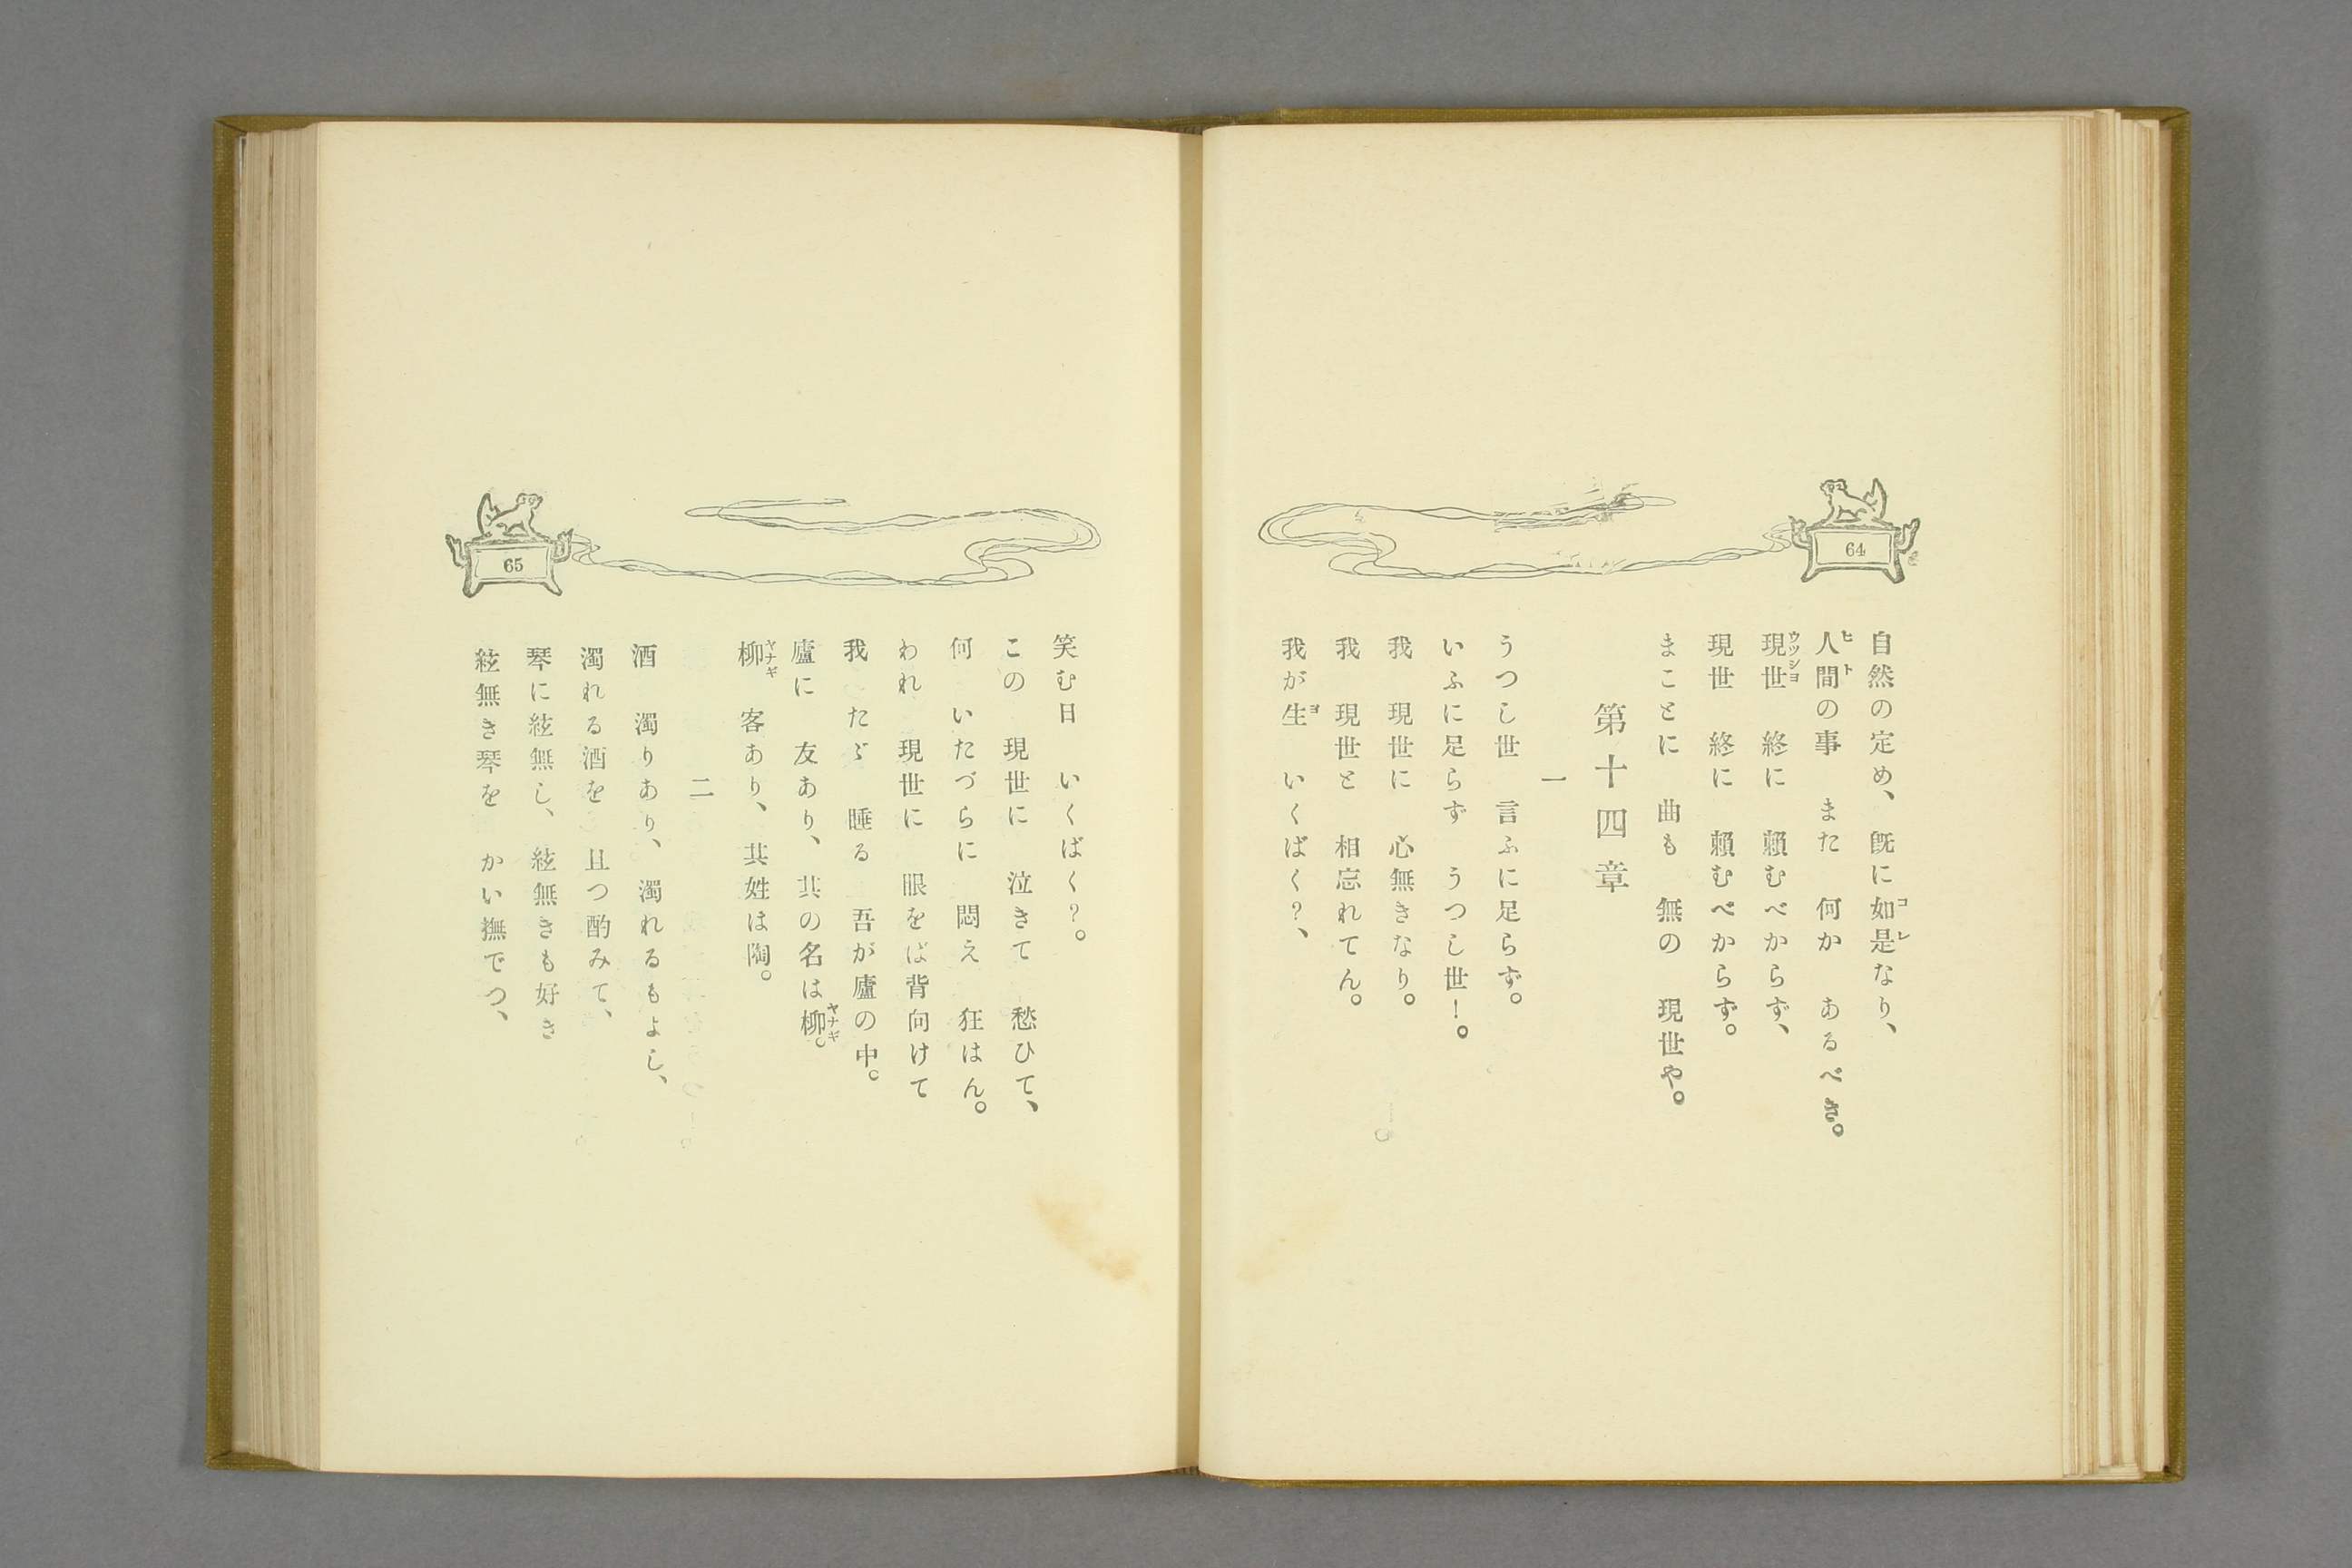 64
自然の定め、既に如是なり、
コレ
人間の事　また　何か　あるべき。
ヒト
現世　終に　賴むべからず、
ウツシヨ
現世　終に　賴むべからず。
まことに　曲も　無の　現世や。
第十四章
一
うつし世　言ふに足らず。
いふに足らず　うつし世！。
我　現世に　心無きなり。
我　現世と　相忘れてん。
我が生　いくばく？、
ヨ
65
笑む日　いくばく？。
この　現世に　泣きて　愁ひて、
何　いたづらに　悶え　狂はん。
われ　現世に　眼をば背向けて
我　たゞ　睡る　吾が廬の中。
廬に　友あり、其の名は柳。
ヤナギ
柳　客あり、其姓は陶。
ヤナギ
二
酒　濁りあり、濁れるもよし、
濁れる酒を　且つ酌みて、
琴に絃無し、絃無きも好き
絃無き琴を　かい撫でつ、